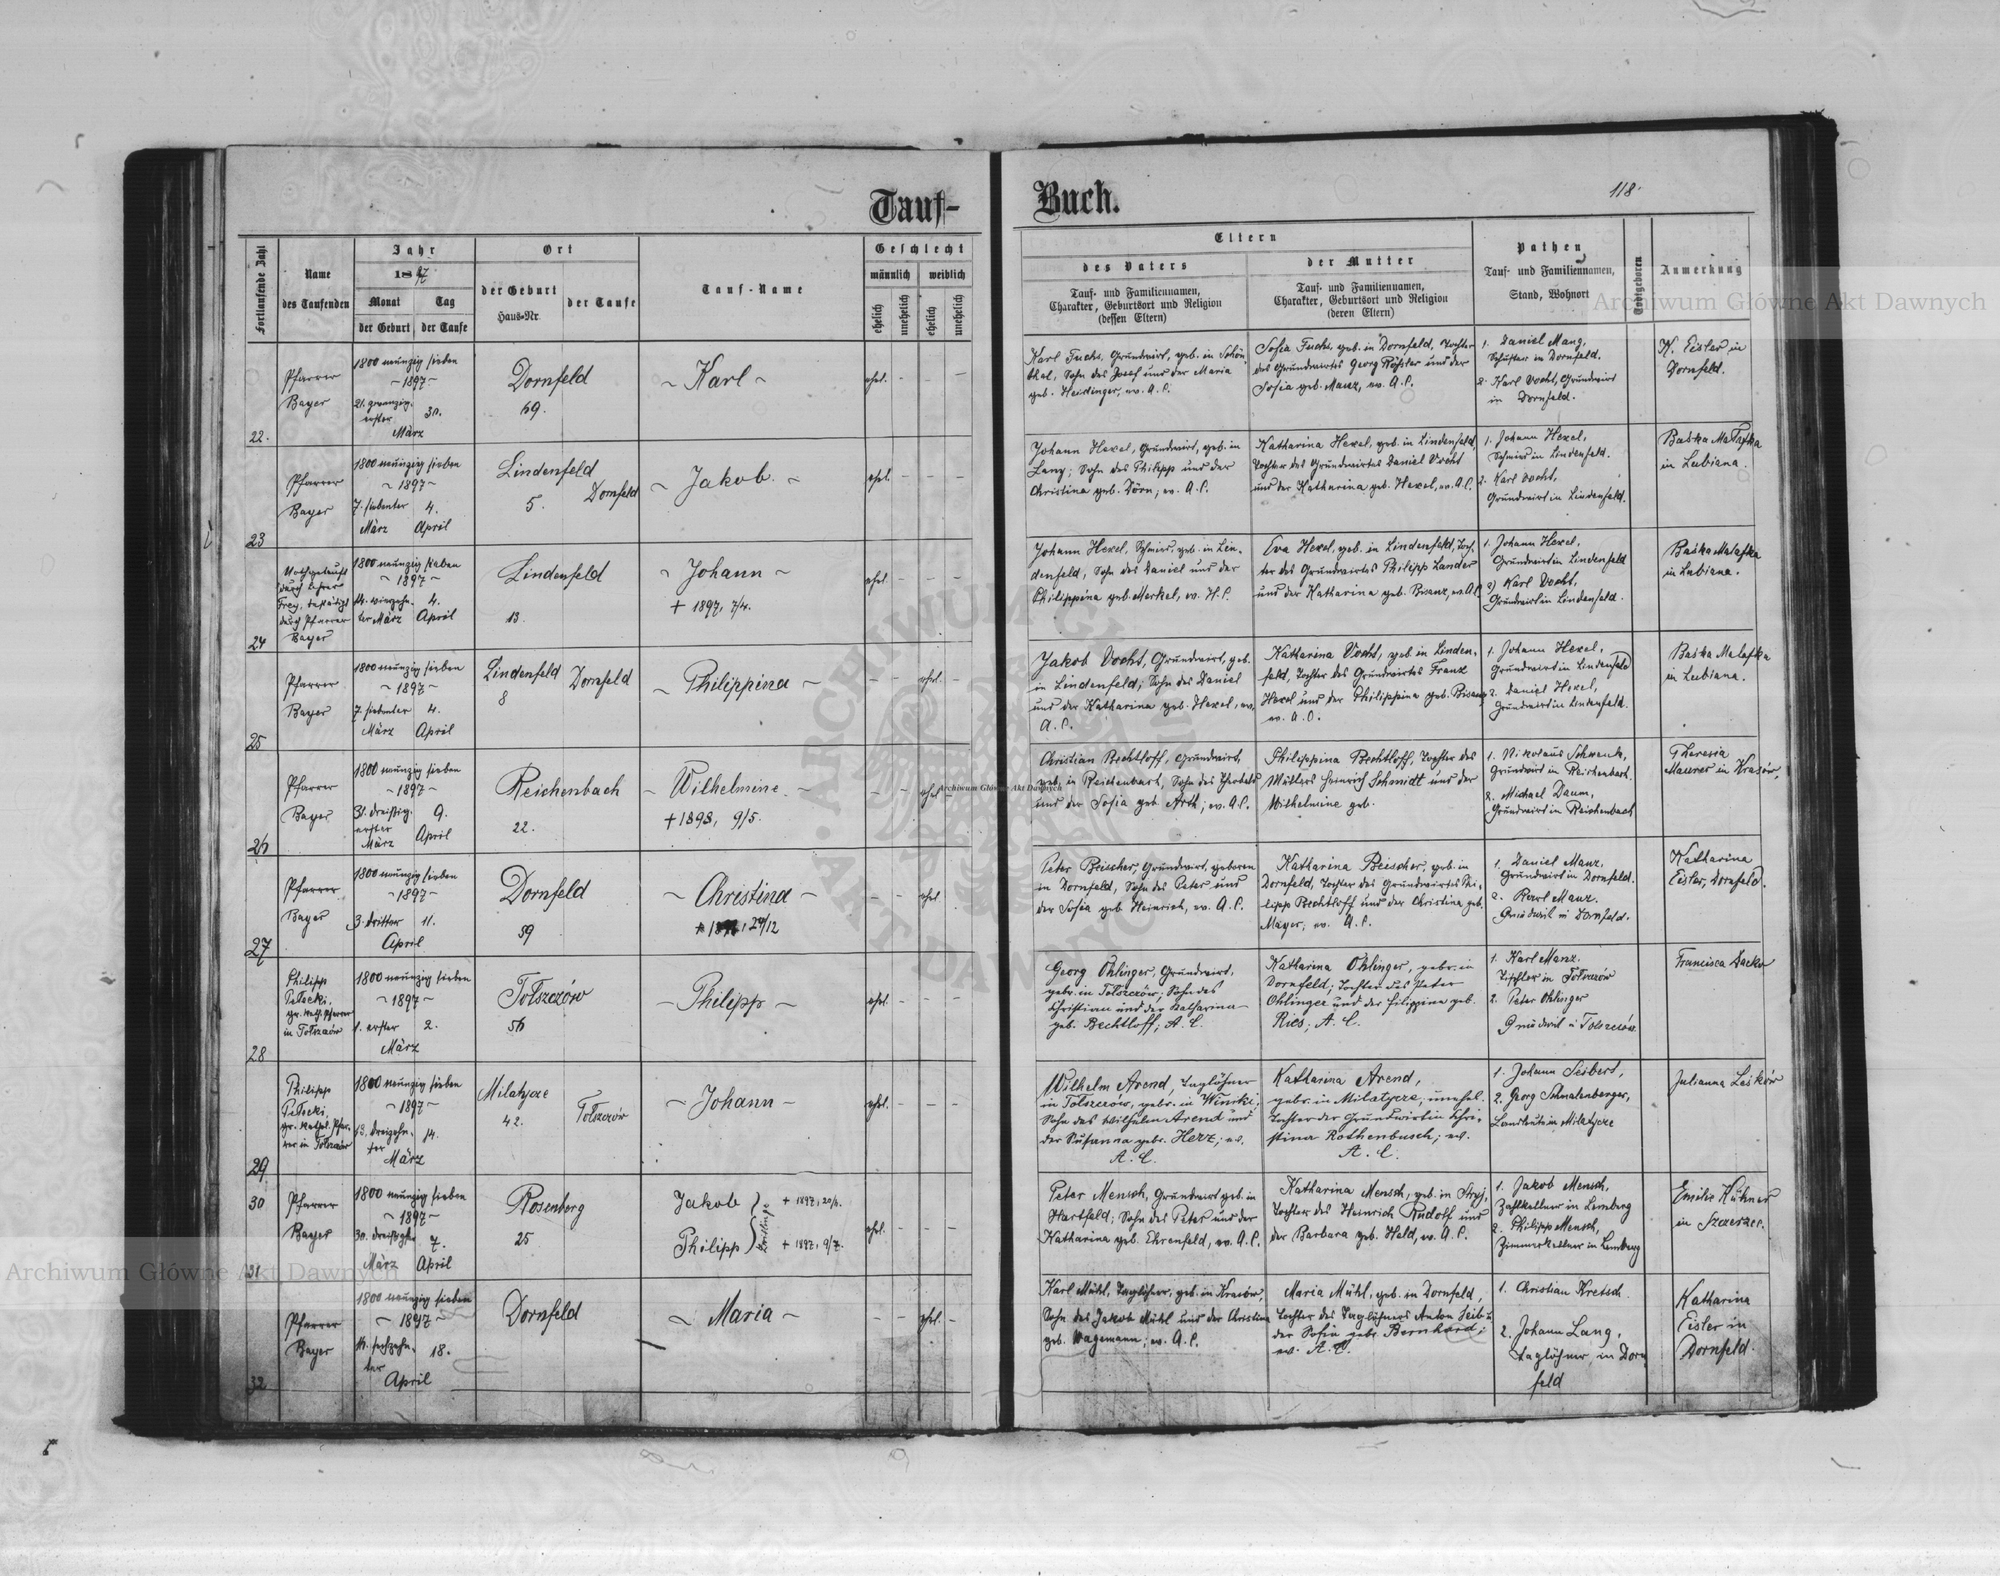 Tauf-
Buch.
118.
Fortlaufende Zahl
Name
des Taufenden
Jahr
1897
Monat
Tag
der Geburt
der Taufe
Ort
der Geburt
Haus-Nr.
der Taufe
Tauf-Name
Geschlecht
männlich
weiblich
ehelich
unehelich
ehelich
unehelich
Eltern
des Vaters
Tauf- und Familiennamen,
Charakter, Geburtsort und Religion
(dessen Eltern)
der Mutter
Tauf- und Familiennamen,
Charakter, Geburtsort und Religion
(deren Eltern)
Pathen
Tauf- und Familiennamen,
Stand, Wohnort
Todtgeboren
Anmerkung
22.
Pfarrer
Bayer
1800 neunzig sieben
~ 1897 ~
21. zwanzig-
erster
30.
März
Dornfeld
69.
~ Karl ~
ehel. - - -
Karl Fuchs, Grundwirt, geb. in Schön
thal, Sohn des Josef und der Maria
geb. Heidinger, ev. A.C.
Sofia Fuchs, geb. in Dornfeld, Tochter
des Grundwirtes Georg Rößler und der
Sofia geb. Manz, ev. A.C.
1. Daniel Manz,
Schuster in Dornfeld.
2. Karl Vocht, Grundwirt
in Dornfeld.
K. Eisler in
Dornfeld.
23
Pfarrer
Bayer
1800 neunzig sieben
~ 1897 ~
7. siebenter
März
4.
April
Lindenfeld
5.
Dornfeld
~ Jakob. ~
ehel. - - -
Johann Hexel, Grundwirt, geb. in
Lany; Sohn des Philipp und der
Christina geb. Dörn; ev. A.C.
Katharina Hexel, geb. in Lindenfeld,
Tochter des Grundwirtes Daniel Vocht
und der Katharina geb. Hexel, ev. A.C.
1. Johann Hexel,
Schmied in Lindenfeld.
2. Karl Vocht,
Grundwirt in Lindenfeld.
Baśka
in Lubiana.
24
Nothgetauft
durch Lehrer
Frey, bestätigt
durch Pfarrer
Bayer
1800 neunzig sieben
~ 1897 ~
14. vierzehn-
ter März
4.
April
Lindenfeld
13.
~ Johann ~
+ 1897, 7/4.
ehel. - - -
Johann Hexel, Schmied, geb. in Lin-
denfeld, Sohn des Daniel und der
Philippina geb. Merkel, ev. H.C.
Eva Hexel, geb. in Lindenfeld, Toch-
ter des Grundwirtes Philipp Lander
und der Katharina geb. Bisanz, ev. A.C.
1. Johann Hexel,
Grundwirt in Lindenfeld
2) Karl Vocht,
Grundwirt in Lindenfeld.
Baśka Malafka
in Lubiana.
25
Pfarrer
Bayer
1800 neunzig sieben
~ 1897 ~
7. siebenter
März
4.
April
Lindenfeld
8
Dornfeld
~ Philippina ~
- - ehel. -
Jakob Vocht, Grundwirt, geb.
in Lindenfeld; Sohn des Daniel
und der Katharina geb. Hexel, ev.
A.C.
Katharina Vocht, geb. in Linden-
feld, Tochter des Grundwirtes Franz
Hexel und der Philippina geb. Bisanz
ev. A.C.
1. Johann Hexel,
Grundwirt in Lindenfeld
2. Daniel Hexel,
Grundwirt in Lindenfeld.
Baśka Malafka
in Lubiana.
26
Pfarrer
Bayer
1800 neunzig sieben
~ 1897 ~
31. dreißig-
erster
März
9.
April
Reichenbach
22.
~ Wilhelmine. ~
+ 1898, 9/5.
- - ehel. -
Christian Bechtloff, Grundwirt,
geb. in Reichenbach, Sohn des
und der Sofia geb. Arth; ev. A.C.
Philippina Bechtloff, Tochter des
Müllers Heinrich Schmidt und der
Wilhelmine geb.
1. Nikolaus Schwenk,
Grundwirt in Reichenbach.
2. Michael Daum,
Grundwirt in Reichenbach
Theresia
Maurer in Krasów.
27
Pfarrer
Bayer
1800 neunzig sieben
~ 1897 ~
3. dritter
11.
April
Dornfeld
59
~ Christina ~
24/12
- - ehel. -
Peter Beischer, Grundwirt, geboren
in Dornfeld, Sohn des Peter und
der Sofia geb. Heinrich, ev. A.C.
Katharina Beischer, geb. in
Dornfeld, Tochter des Grundwirtes Phi-
lipp Bechtloff und der Christina geb.
Mayer, ev. A.C.
1. Daniel Manz,
Grundwirt in Dornfeld.
2. Karl Manz.
in Dornfeld.
Katharina
Eisler, Dornfeld.
28
Philipp
Pełecki,
gr. kath. Pfarrer
in Tołszczów
1800 neunzig sieben
~ 1897 ~
1. erster
2.
März
Tołszczów
56
~ Philipp ~
ehel. - - -
Georg Ohlinger, Grundwirt,
gebr. in Tołszczów; Sohn des
Christian und der Katharina
geb. Bechtloff; A.C.
Katharina Ohlinger, gebr. in
Dornfeld; Tochter des Peter
Ohlinger und der Filippina geb.
Ries; A.C.
1. Karl Manz.
Tischler in Tołszczów
2. Peter Ohlinger
Tołszczów
Francisca Dacko
29
Philipp
Pełecki,
gr. kathol. Pfar-
rer in Tołszczów
1800 neunzig sieben
~ 1897 ~
13. dreizehn-
ter
14.
März
Milatycze
42.
Tołszczów
~ Johann ~
ehel. - - -
Wilhelm Arend, Taglöhner
in Tołszczów, gebr. in Winniki;
Sohn des Wilhelm Arend und
der Susanna gebr. Herz; ev.
A.C.
Katharina Arend,
gebr. in Milatycze, unehel.
Tochter der Grundwirtin Chri-
stina Rothenbusch; ev.
A.C.
1. Johann Seibert,
2. Georg Schnalenberger,
Landleute in Milatycze
Julianna Leśków
30
31
Pfarrer
Bayer
1800 neunzig sieben
~ 1897 ~
30. dreißigster
März
7.
April
Rosenberg
25
Jakob
Philipp
Zwillinge
+ 1897, 20/4.
+ 1897, 9/7.
ehel. - - -
Peter Mensch, Grundwirt geb. in
Hartfeld; Sohn des Peter und der
Katharina geb. Ehrenfeld, ev. A.C.
Katharina Mensch, geb. in Stryj,
Tochter des Heinrich Rudolf und
der Barbara geb. Held, ev. A.C.
1. Jakob Mensch,
Zahlkellner in Lemberg
2. Philipp Mensch,
Zimmerkellner in Lemberg
Emilie Hühner
in Szczerzec.
32
Pfarrer
Bayer
1800 neunzig sieben
~ 1897 ~
16. sechzehn-
ter
18.
April
Dornfeld
~ Maria ~
- - ehel. -
Karl Mühl, Taglöhner, geb. in Krasów,
Sohn des Jakob Mühl und der Christina
geb. Wagemann; ev. A.C.
Maria Mühl, geb. in Dornfeld,
Tochter des Taglöhners Anton Seib u.
der Sofia gebr. Bernhard;
ev. A.C.
1. Christian Kretsch.
2. Johann Lang,
Taglöhner, in Dorn
feld
Katharina
Eisler in
Dornfeld.
Archiwum Główne Akt Dawnych
Archiwum Główne Akt Dawnych
Archiwum Główne Akt Dawnych